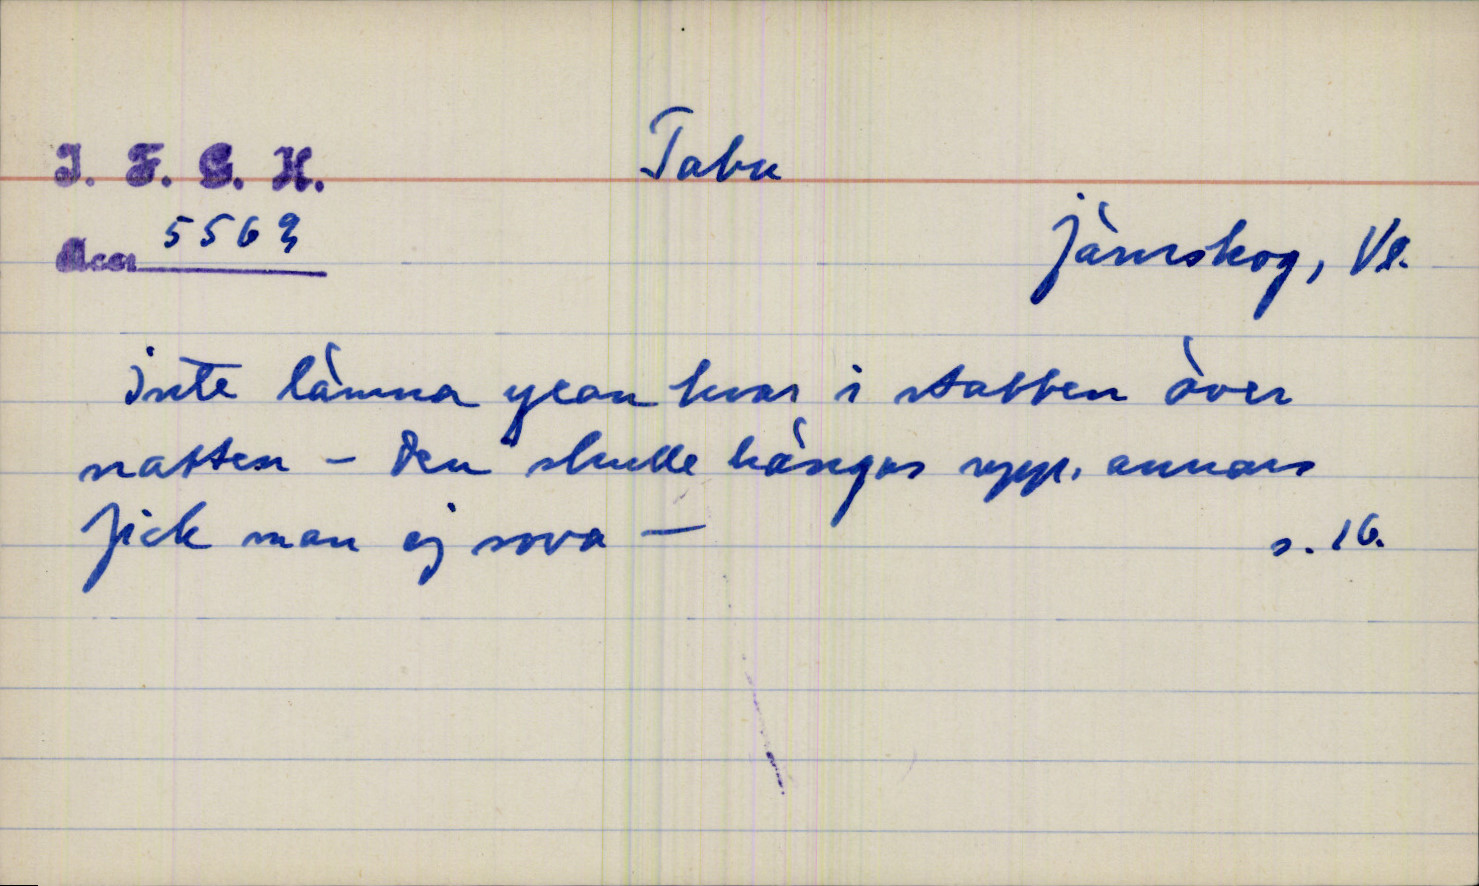 I. F. G. H.
Tabu
Acc 5569
Järnskog, Vl.
Inte lämna yxan kvar i stabben över
natten – den skulle hängas upp, annars
fick man ej sova –
s. 16.